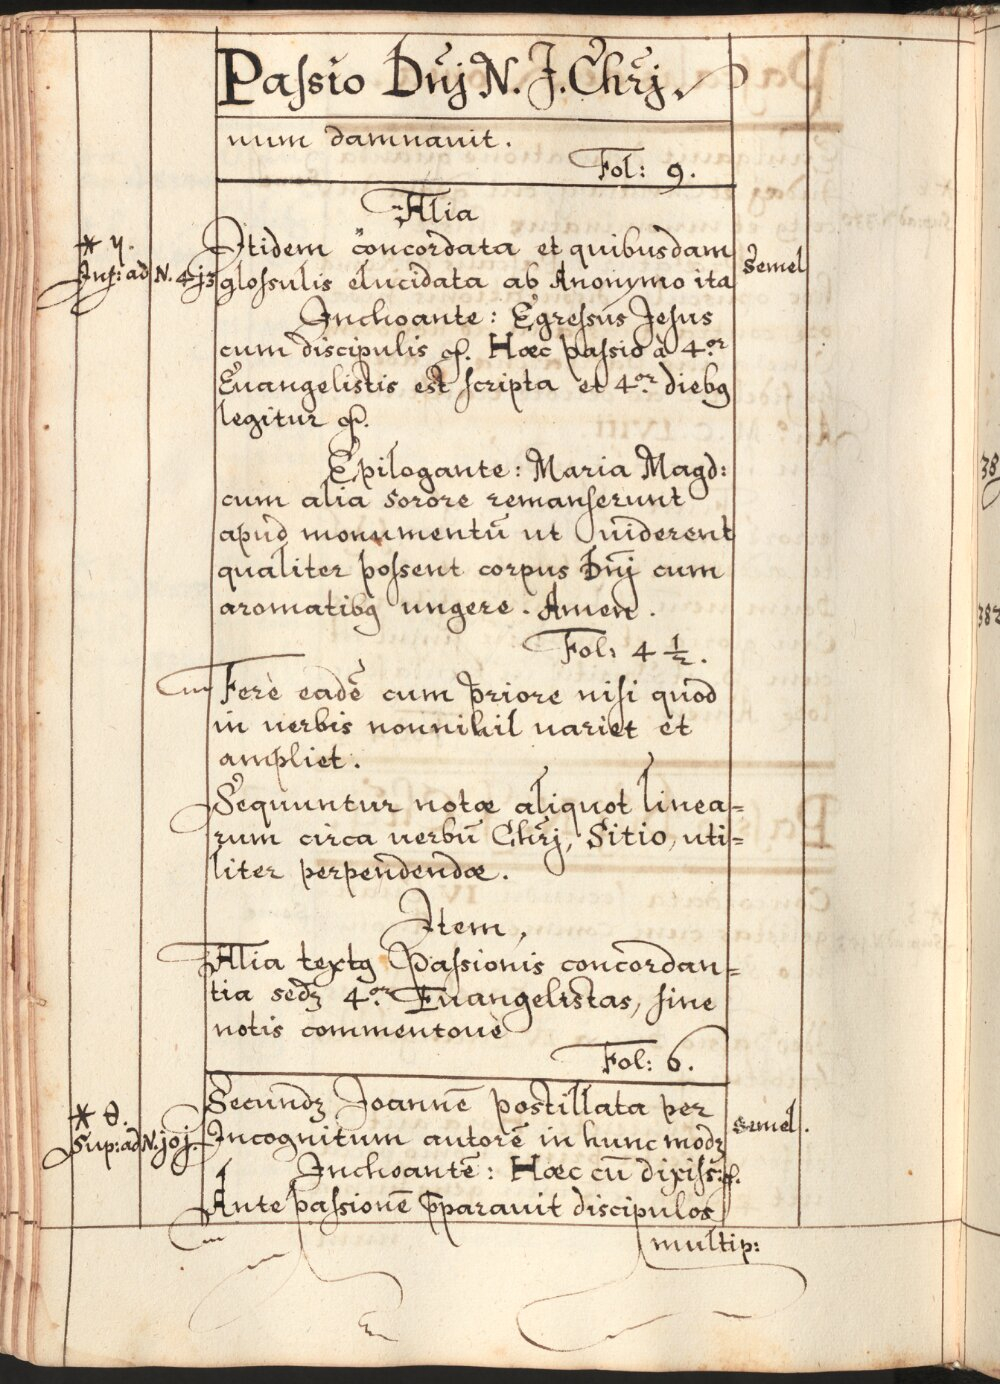 Passio Dñj N. J. Chrj.
num damnauit.
Fol: 9.
Alia
Itidem concordata et quibusdam
* η.
Inf: ad N. 4j3
glossulis elucidata ab Anonymo ita
Semel
Inchoante: Egressus Jesus
cum discipulis &. Hæc passio à 4.or
Euangelistis est scripta et 4.or diebꝫ
legitur &.
Epilogante: Maria Magd:
cum alia sorore remanserunt
apud monumentũ ut uiderent
qualiter possent corpus Dñj cum
aromatibꝫ ungere. Amen.
Fol: 4 1/2.
Ferè eadẽ cum priore nisi quod
in uerbis nonnihil uariet et
ampliet.
Sequuntur notæ aliquot linea=
rum circa uerbũ Chrj, Sitio, uti=
liter perpendendæ.
Item,
Alia textꝫ Passionis concordan=
tia secdꝫ 4.or Euangelistas, sine
notis commentoue
Fol: 6.
Secundꝫ Joannẽ postillata per
* θ.
Sup: ad N. joj.
Incognitum autorẽ in hunc modꝫ
semel.
Inchoantẽ: Hæc cũ dixiss: &.
Ante passionẽ p̄parauit discipulos
multip:
38
382